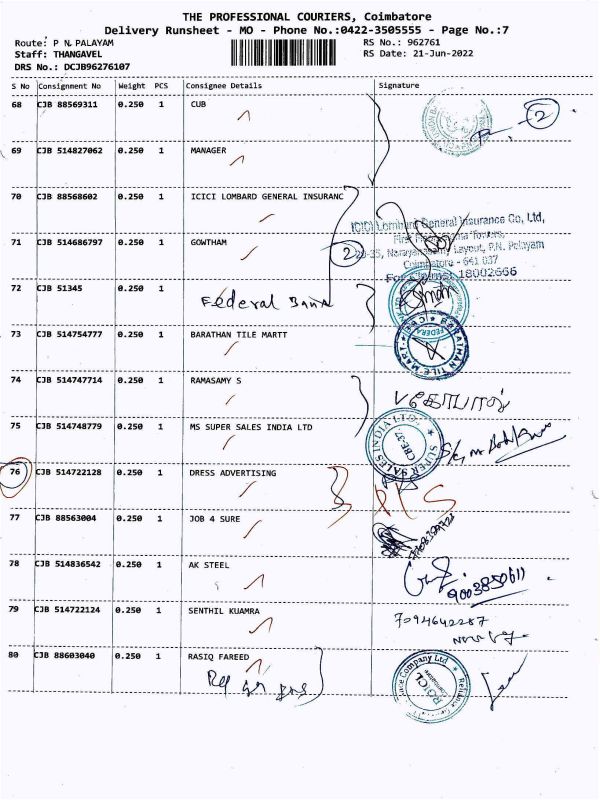 THE PROFESSIONAL COURIERS, Coimbatore
Delivery Runsheet - MO - Phone No.:0422-3505555 - Page No.:7
Route: P N PALAYAM RS No.: 962761
Staff: THANGAVEL RS Date: 21-Jun-2022
DRS No.: DCJB96276107
S No Consignment No Weight PCS Consignee Details Signature
68 CJB 88569311 0.250 1 CUB
2
69 CJB 514827062 0.250 1 MANAGER
70 CJB 88568602 0.250 1 ICICI LOMBARD GENERAL INSURANC
ICICI Lombard General Insurance Co, Ltd,
71 CJB 514686797 0.250 1 GOWTHAM
2
Narayanasamy Layout, P.N. Palayam
Coimbatore - 641 037
18002666
72 CJB 51345 0.250 1
Federal Bank
73 CJB 514754777 0.250 1 BARATHAN TILE MARTT
BARATHAN TILE MART
74 CJB 514747714 0.250 1 RAMASAMY S
75 CJB 514748779 0.250 1 MS SUPER SALES INDIA LTD
SUPER SALES INDIA LTD.
CBE-37.
76 CJB 514722128 0.250 1 DRESS ADVERTISING
77 CJB 88563004 0.250 1 JOB 4 SURE
78 CJB 514836542 0.250 1 AK STEEL
9003850611
79 CJB 514722124 0.250 1 SENTHIL KUAMRA
7094642287
80 CJB 88603040 0.250 1 RASIQ FAREED
RGICL